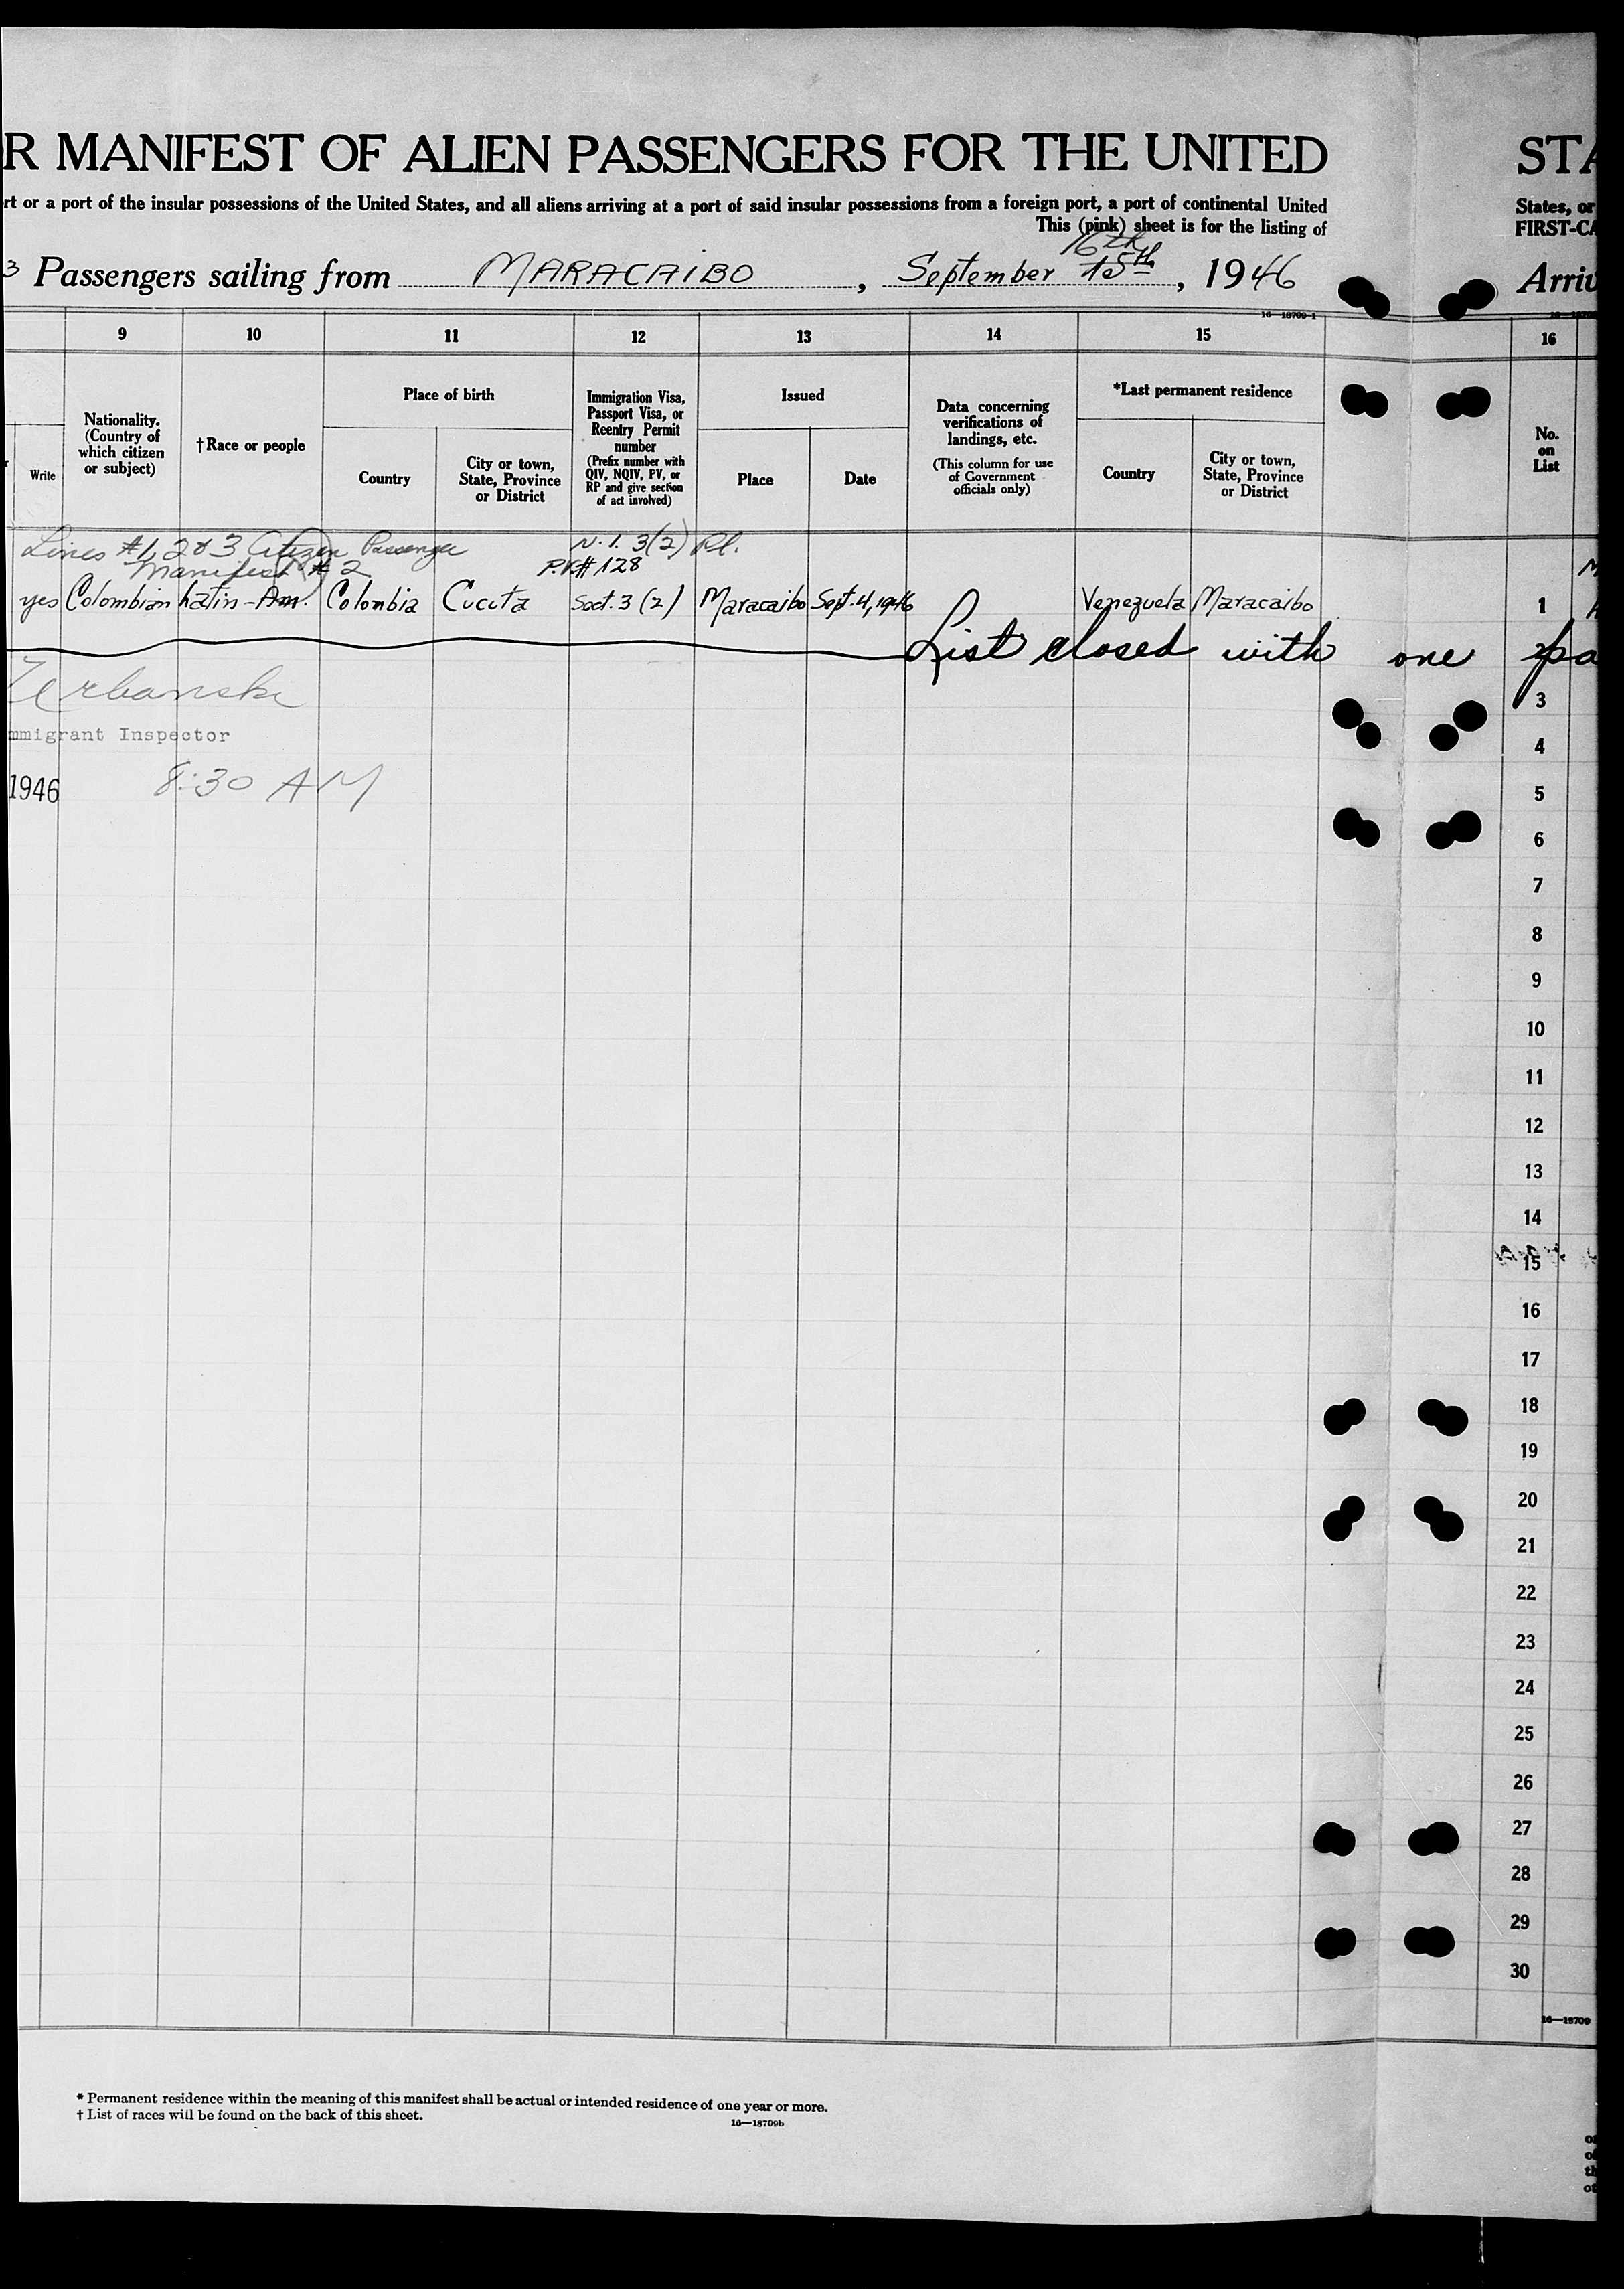 R MANIFEST OF ALIEN PASSENGERS FOR THE UNITED STA
rt or a port of the insular possessions of the United States, and all aliens arriving at a port of said insular possessions from a foreign port, a port of continental United States, or
This (pink) sheet is for the listing of FIRST-CA
16th
3 Passengers sailing from MARACAIBO, September 15th, 1946 Arriv
16—18709-1
9 10 11 12 13 14 15 16
Write
Nationality. (Country of which citizen or subject)
†Race or people
Place of birth
Country
City or town, State, Province or District
Immigration Visa, Passport Visa, or Reentry Permit number (Prefix number with QIV, NQIV, PV, or RP and give section of act involved)
Issued
Place
Date
Data concerning verifications of landings, etc. (This column for use of Government officials only)
*Last permanent residence
Country
City or town, State, Province or District
No. on List
Lines #1, 2 & 3 Citizen Passenger N.I. 3(2) Pl.
Manifest #2 P.V.# 128
yes Colombian Latin-Am. Colombia Cucuta Sect. 3 (2) Maracaibo Sept. 4, 1946 Venezuela Maracaibo 1
List closed with one pa
Urbanski
mmigrant Inspector
1946 8:30 AM
3
4
5
6
7
8
9
10
11
12
13
14
15
16
17
18
19
20
21
22
23
24
25
26
27
28
29
30
16—18709
* Permanent residence within the meaning of this manifest shall be actual or intended residence of one year or more.
† List of races will be found on the back of this sheet.
16—18709b